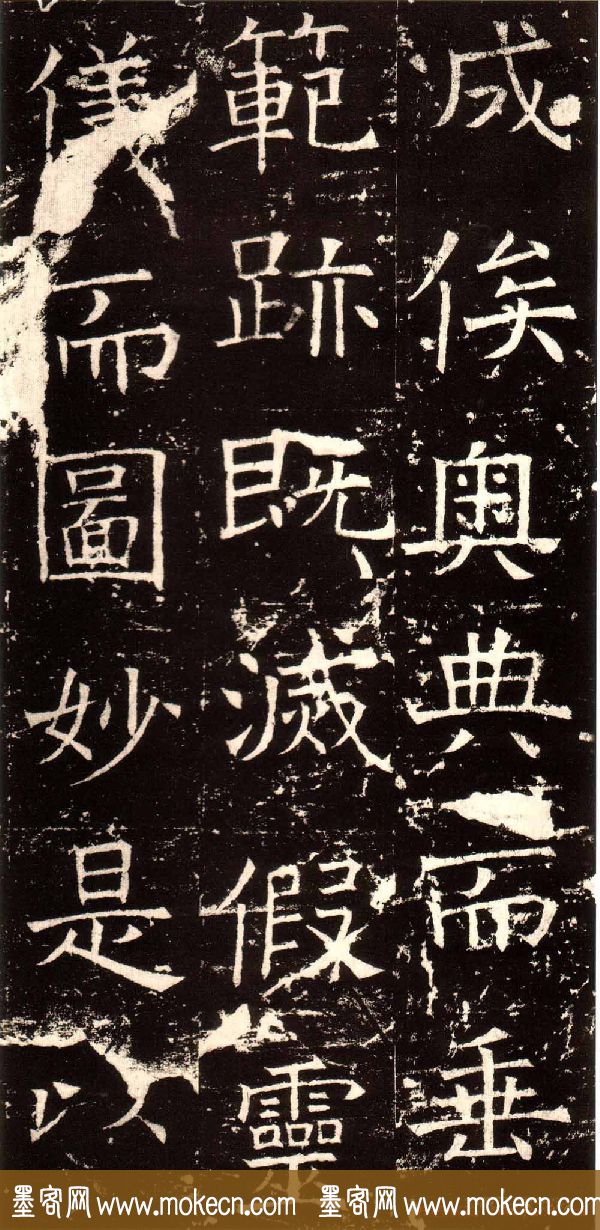 成俟奧典而垂
範跡既滅假靈
儀而圖妙是以
墨客网 www.mokecn.com 墨客网 www.mokecn.com